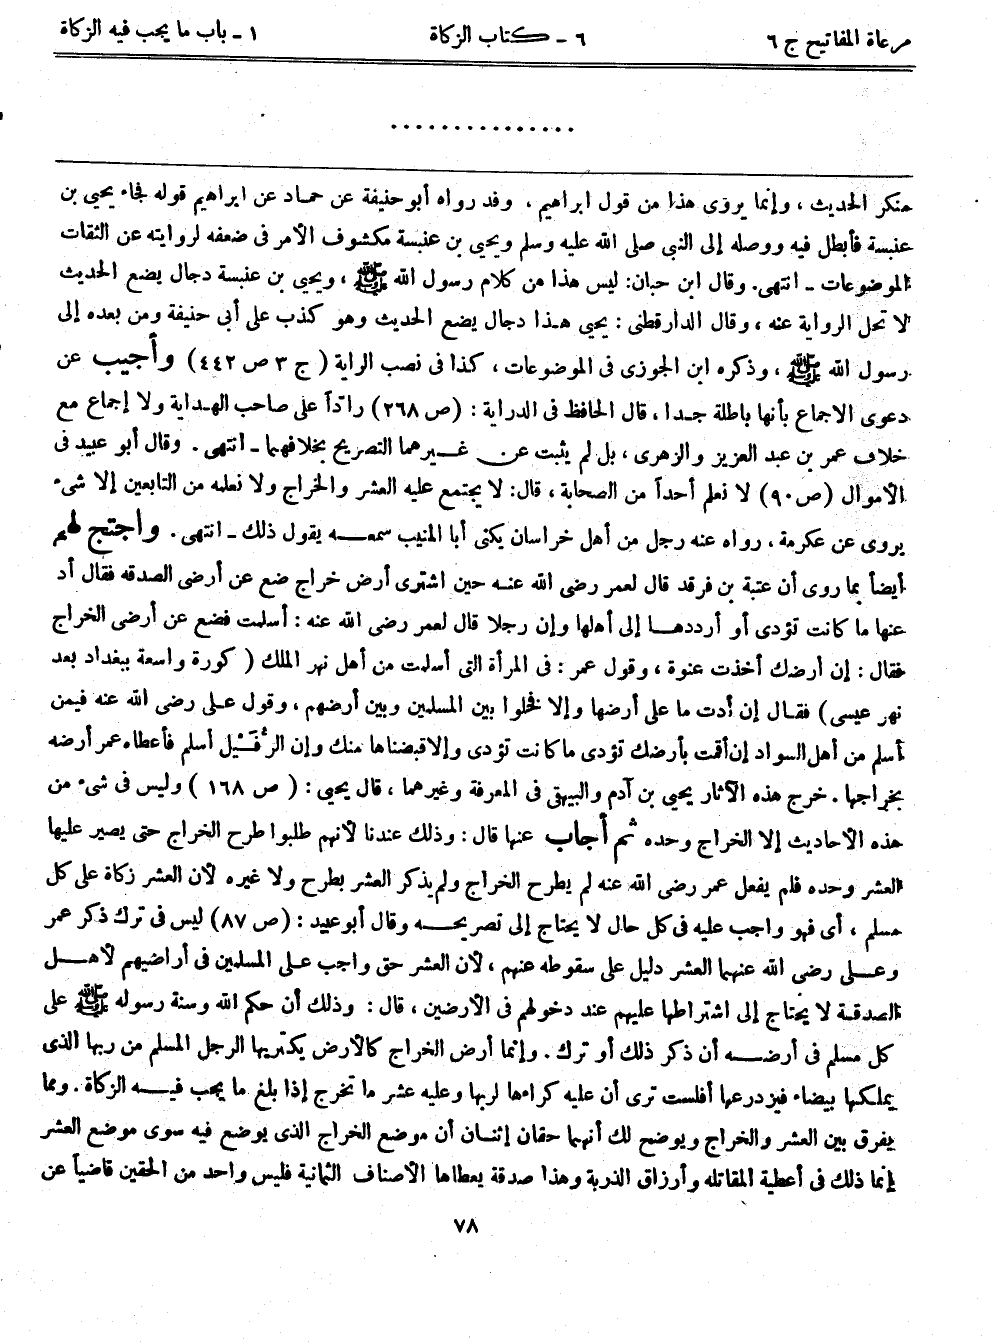 مرعاة المفاتيح ج ٦
٦ ـ كتاب الزكاة
١ ـ باب ما يجب فيه الزكاة
...............
منكر الحديث ، وإنما يروى هذا من قول ابراهيم ، وقد رواه أبو حنيفة عن حماد عن ابراهيم قوله فجاء يحيى بن
عنبسة فأبطل فيه ووصله إلى النبي صلى الله عليه وسلم ويحيى بن عنبسة مكشوف الأمر فى ضعفه لروايته عن الثقات
الموضوعات ـ انتهى. وقال ابن حبان: ليس هذا من كلام رسول الله ﷺ ، ويحيى بن عنبسة دجال يضع الحديث
لا تحل الرواية عنه ، وقال الدارقطنى : يحيى هذا دجال يضع الحديث وهو كذب على أبى حنيفة ومن بعده إلى
رسول الله ﷺ ، وذكره ابن الجوزى فى الموضوعات ، كذا فى نصب الراية ( ج ٣ ص ٤٤٢) وأجيب عن
دعوى الاجماع بأنها باطلة جدا ، قال الحافظ فى الدراية : (ص ٢٦٨) رادّاً على صاحب الهداية ولا إجماع مع
خلاف عمر بن عبد العزيز والزهرى ، بل لم يثبت عن غيرهما التصريح بخلافهما ـ انتهى . وقال أبو عبيد فى
الأموال (ص ٩٠) لا نعلم أحداً من الصحابة ، قال: لا يجتمع عليه العشر والخراج ولا نعلمه من التابعين إلا شىء
يروى عن عكرمة ، رواه عنه رجل من أهل خراسان يكنى أبا المنيب سمعه يقول ذلك ـ انتهى . واحتج لهم
أيضاً بما روى أن عتبة بن فرقد قال لعمر رضى الله عنه حين اشترى أرض خراج ضع عن أرضى الصدقه فقال أد
عنها ما كانت تؤدى أو أرددها إلى أهلها وإن رجلا قال لعمر رضى الله عنه : أسلمت فضع عن أرضى الخراج
فقال : إن أرضك أخذت عنوة ، وقول عمر : فى المرأة التى أسلمت من أهل نهر الملك ( كورة واسعة ببغداد بعد
نهر عيسى) فقال إن أدت ما على أرضها وإلا فخلوا بين المسلمين وبين أرضهم ، وقول على رضى الله عنه فيمن
أسلم من أهل السواد إن أقمت بأرضك تؤدى ما كانت تؤدى وإلا قبضناها منك وإن الرُفَيْل أسلم فأعطاه عمر أرضه
بخراجها . خرج هذه الآثار يحيى بن آدم والبيهقى فى المعرفة وغيرهما ، قال يحيى : ( ص ١٦٨ ) وليس فى شىء من
هذه الأحاديث إلا الخراج وحده ثم أجاب عنها قال : وذلك عندنا لأنهم طلبوا طرح الخراج حتى يصير عليها
العشر وحده فلم يفعل عمر رضى الله عنه لم يطرح الخراج ولم يذكر العشر بطرح ولا غيره لأن العشر زكاة على كل
مسلم ، أى فهو واجب عليه فى كل حال لا يحتاج إلى تصريحه وقال أبو عبيد : (ص ٨٧) ليس فى ترك ذكر عمر
وعلى رضى الله عنهما العشر دليل على سقوطه عنهم ، لأن العشر حق واجب على المسلمين فى أراضيهم لأهل
الصدقة لا يحتاج إلى اشتراطها عليهم عند دخولهم فى الأرضين ، قال : وذلك أن حكم الله وسنة رسوله ﷺ على
كل مسلم فى أرضه أن ذكر ذلك أو ترك . وإنما أرض الخراج كالأرض يكتريها الرجل المسلم من ربها الذى
يملكها بيضاء فيزدرعها أفلست ترى أن عليه كراءها لربها وعليه عشر ما تخرج إذا بلغ ما يجب فيه الزكاة . ومما
يفرق بين العشر والخراج ويوضح لك أنهما حقان إثنان أن موضع الخراج الذى يوضع فيه سوى موضع العشر
إنما ذلك فى أعطية المقاتله وأرزاق الذرية وهذا صدقة يعطاها الأصناف الثمانية فليس واحد من الحقين قاضياً عن
٧٨